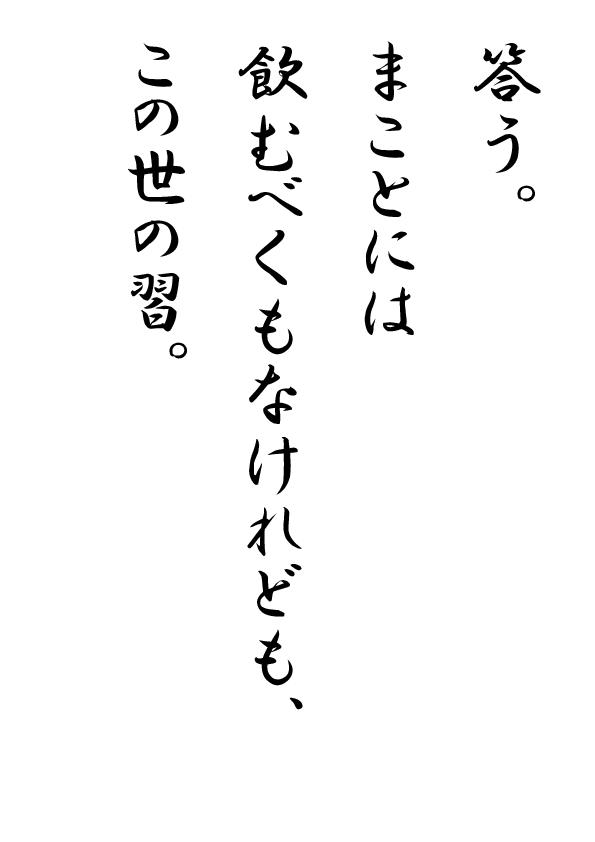 答う。
まことには
飲むべくもなけれども、
この世の習。